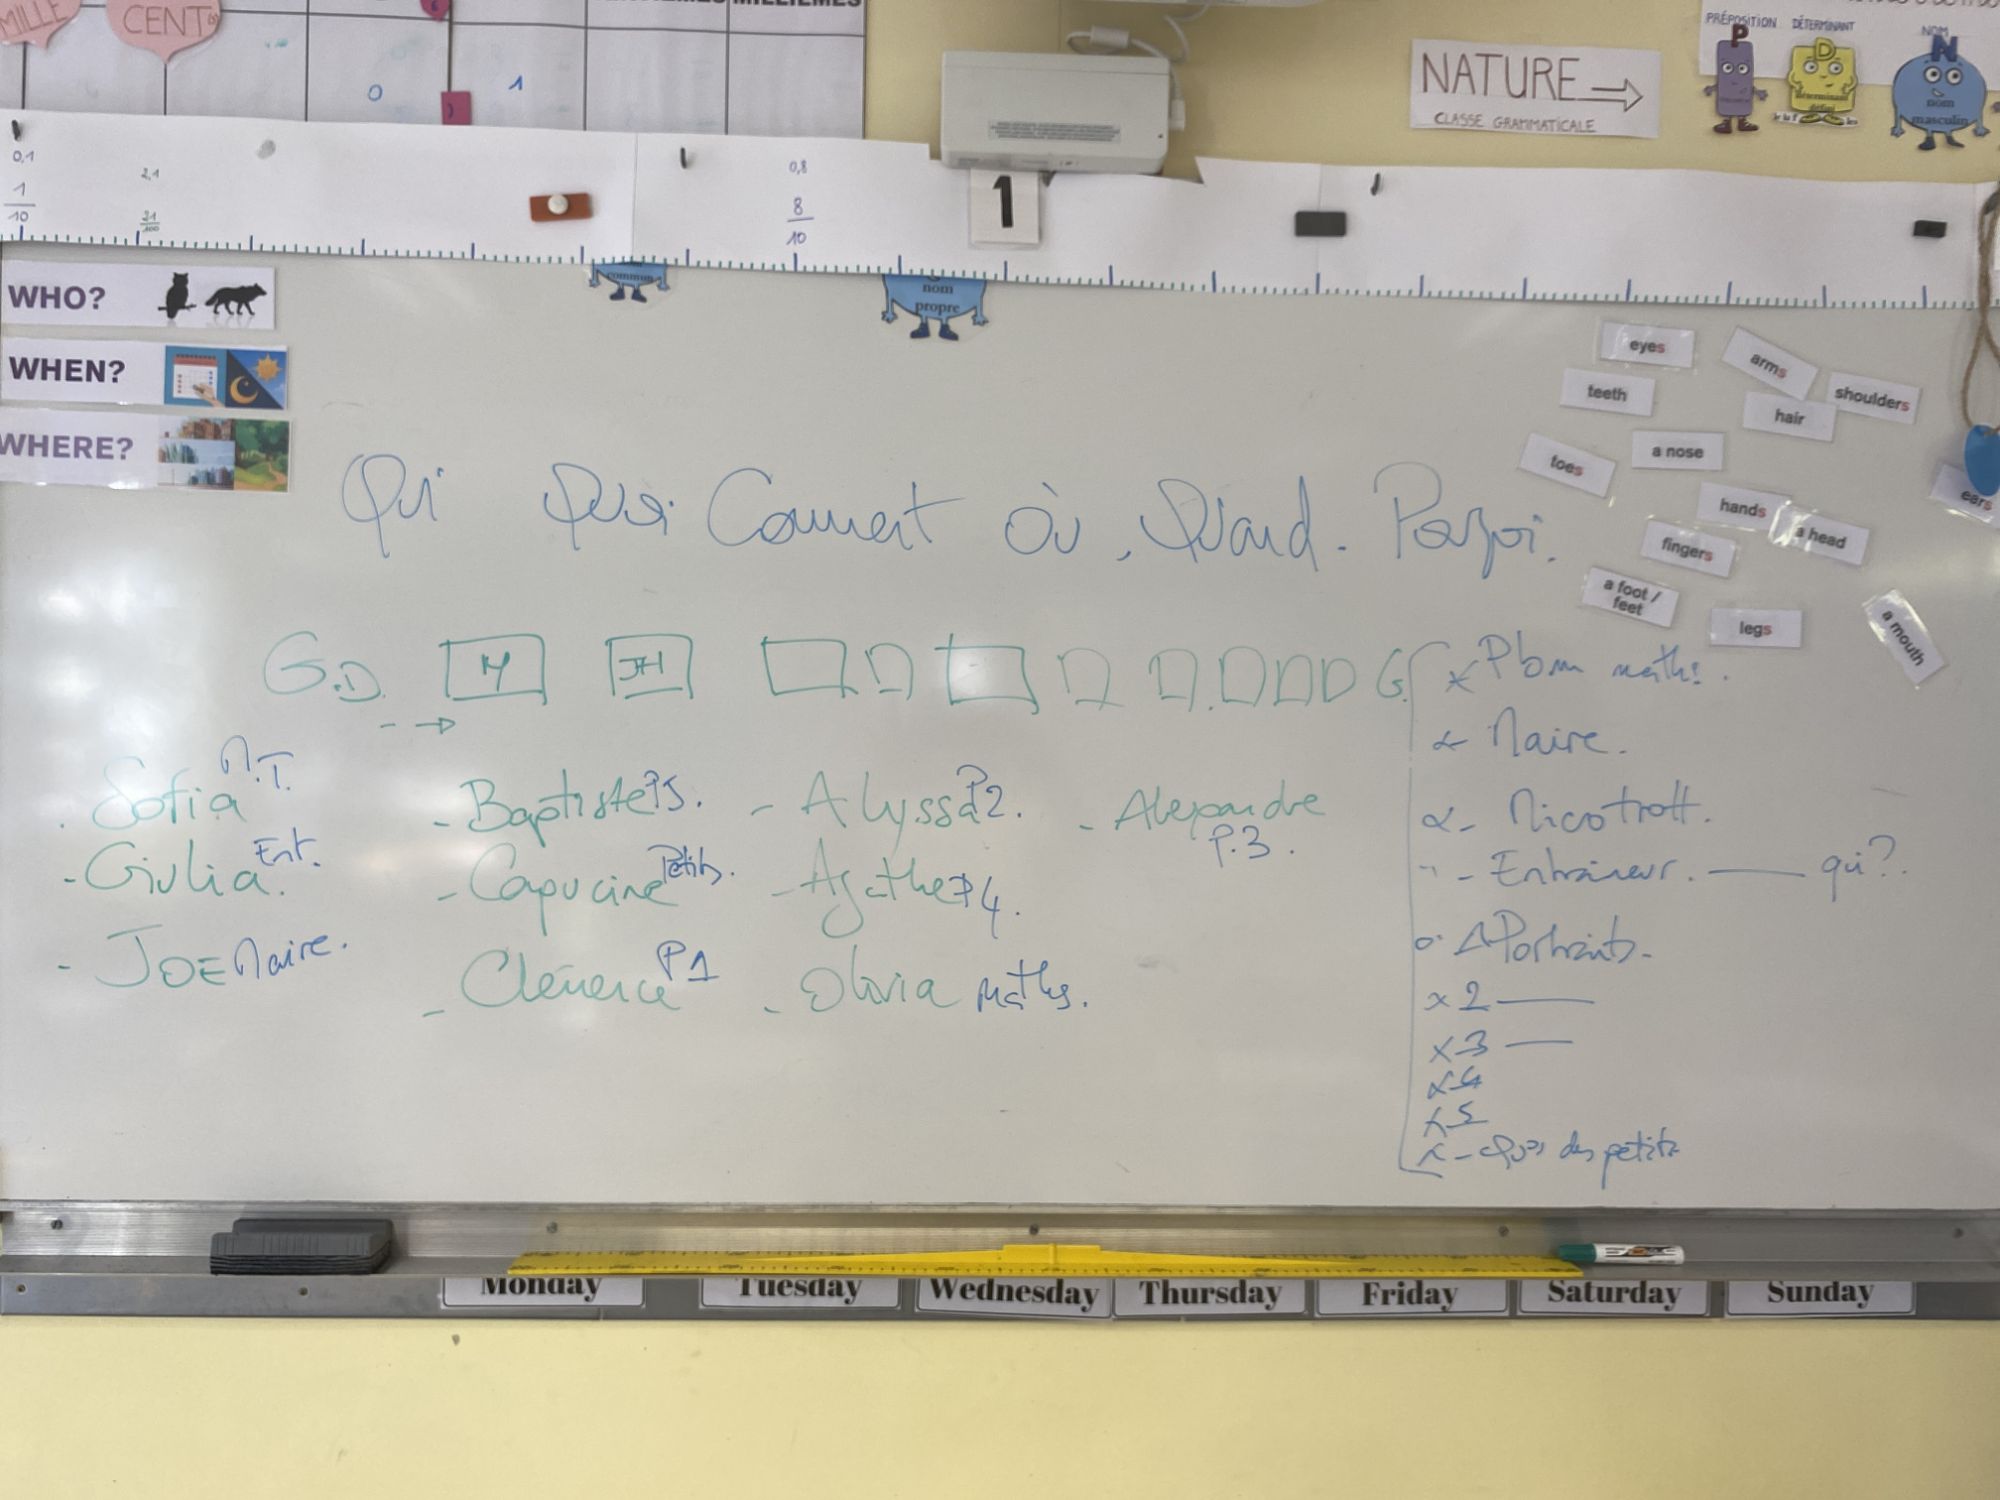 MILLE
CENT
MILLIÈMES
0 1
PRÉPOSITION DÉTERMINANT NOM
P D N
déterminant défini
nom masculin
NATURE →
CLASSE GRAMMATICALE
0,1
1/10
2,1
21/100
0,8
8/10
1
commun
nom propre
WHO?
WHEN?
WHERE?
eyes
arms
teeth
shoulders
hair
a nose
toes
hands
ears
a head
fingers
a foot / feet
legs
a mouth
Qui Quoi Comment Où. Quand. Pourquoi.
G.D. M JH G
-->
. Sofia M.T.
- Giulia. Ent.
- JOE Maire.
- Baptiste P5.
- Capucine Petits.
- Clémence P1
- Alyssa P2.
- Agathe P4.
- Olivia Maths.
- Alexandre P.3.
x Pbm maths.
Maire.
- Micotrott.
- Entraineur. — qui?
Portraits.
x 2 —
x 3 —
x 4
x 5
x - des petits
Monday Tuesday Wednesday Thursday Friday Saturday Sunday